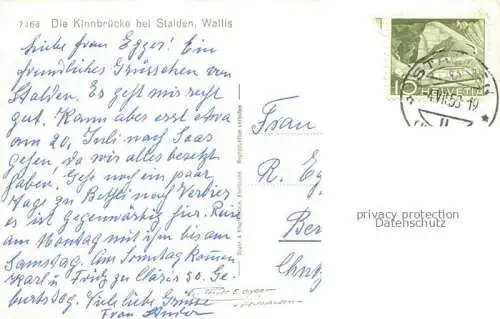 7468 Die Kinnbrücke bei Stalden, Wallis
Liebe Frau Egger! Ein
freundliches Grüsschen von
Stalden. Es geht mir recht
gut. Kann aber erst etwa
am 20. Juli nach Saas
gehen, da wir alles besetzt
haben. Gehe noch ein paar
Tage zu Bethli nach Verbier
es ist gegenwärtig für
am Montag mit ihm bis am
Samstag. Am Sonntag kommen
Karl u. Fridy zu 50. Ge-
burtstag. Viele liebe Grüsse
Frau
Frau
R. Eg
Ber
10
HELVETIA
STALDEN
VII.53-19
privacy protection
Datenschutz